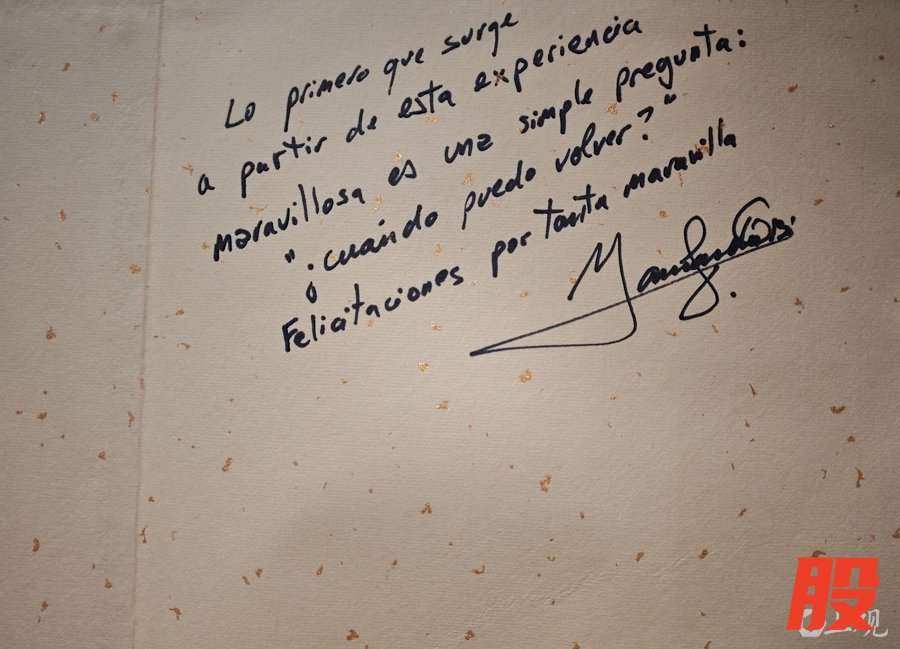 Lo primero que surge
a partir de esta experiencia
maravillosa es una simple pregunta:
"¿cuándo puedo volver?"
Felicitaciones por tanta maravilla
股